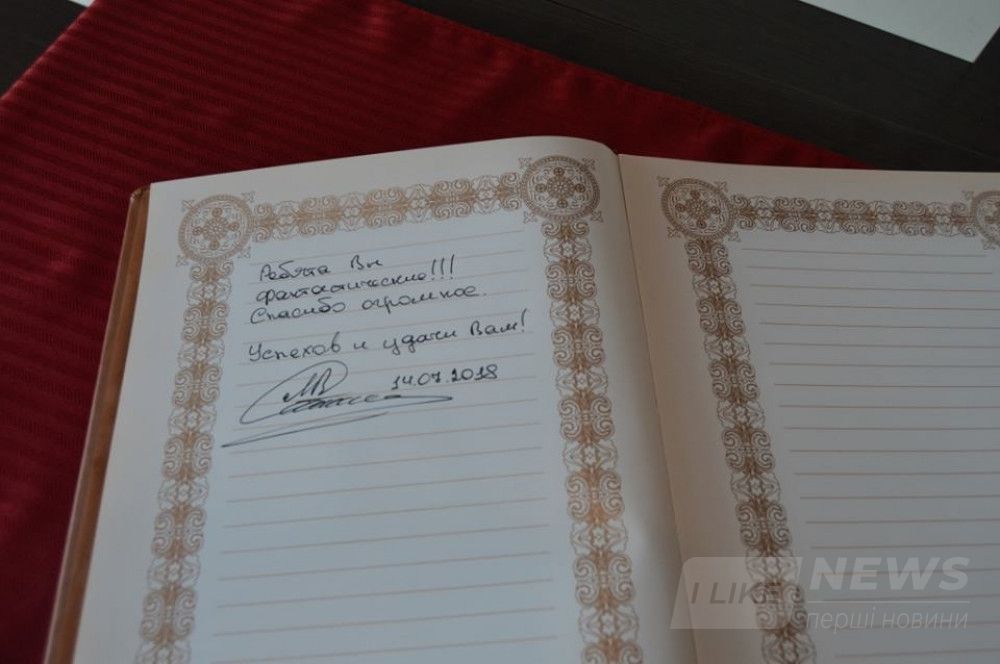 Ребята Вы
фантастические!!!
Спасибо огромное.
Успехов и удачи Вам!
14.07.2018
I LIKE NEWS
перші новини